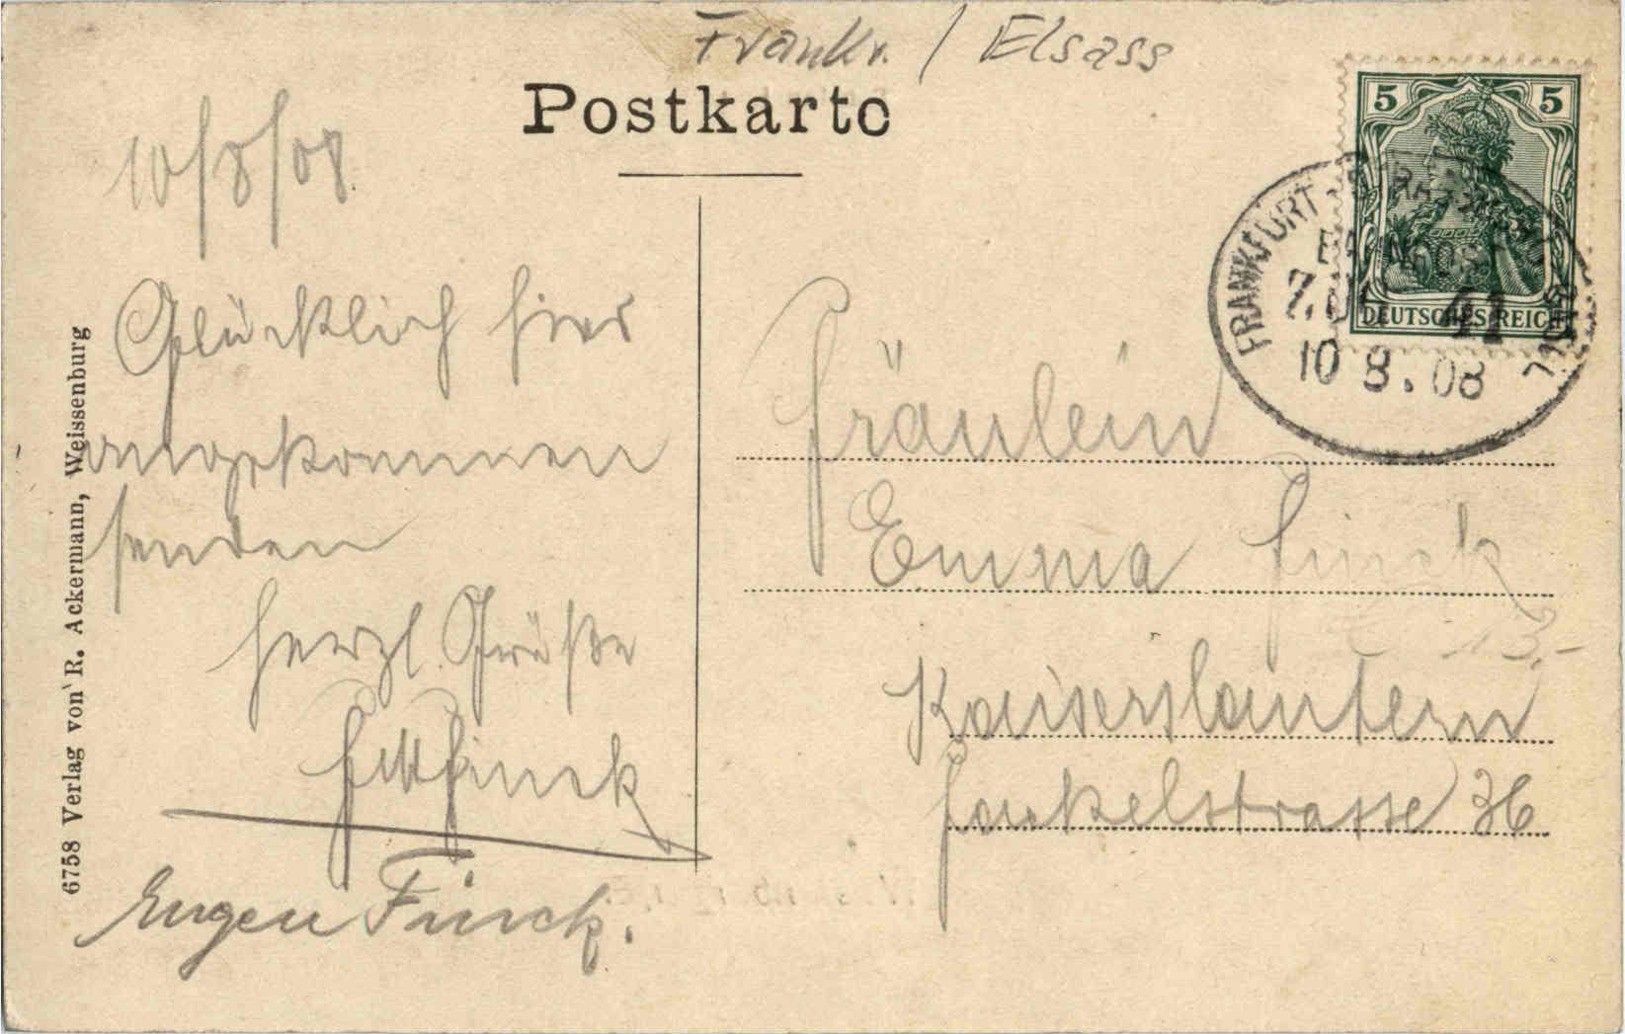 Frankr. / Elsass
Postkarte
10/8/08
Glücklich hier
angekommen
senden
herzl. Grüße
Finck
Eugen Finck.
6758 Verlag von R. Ackermann, Weissenburg
5 5
DEUTSCHES REICH
FRANKFURT
10 8. 08
Fräulein
Emma Finck
13.-
Kaiserslautern
Fackelstrasse 36